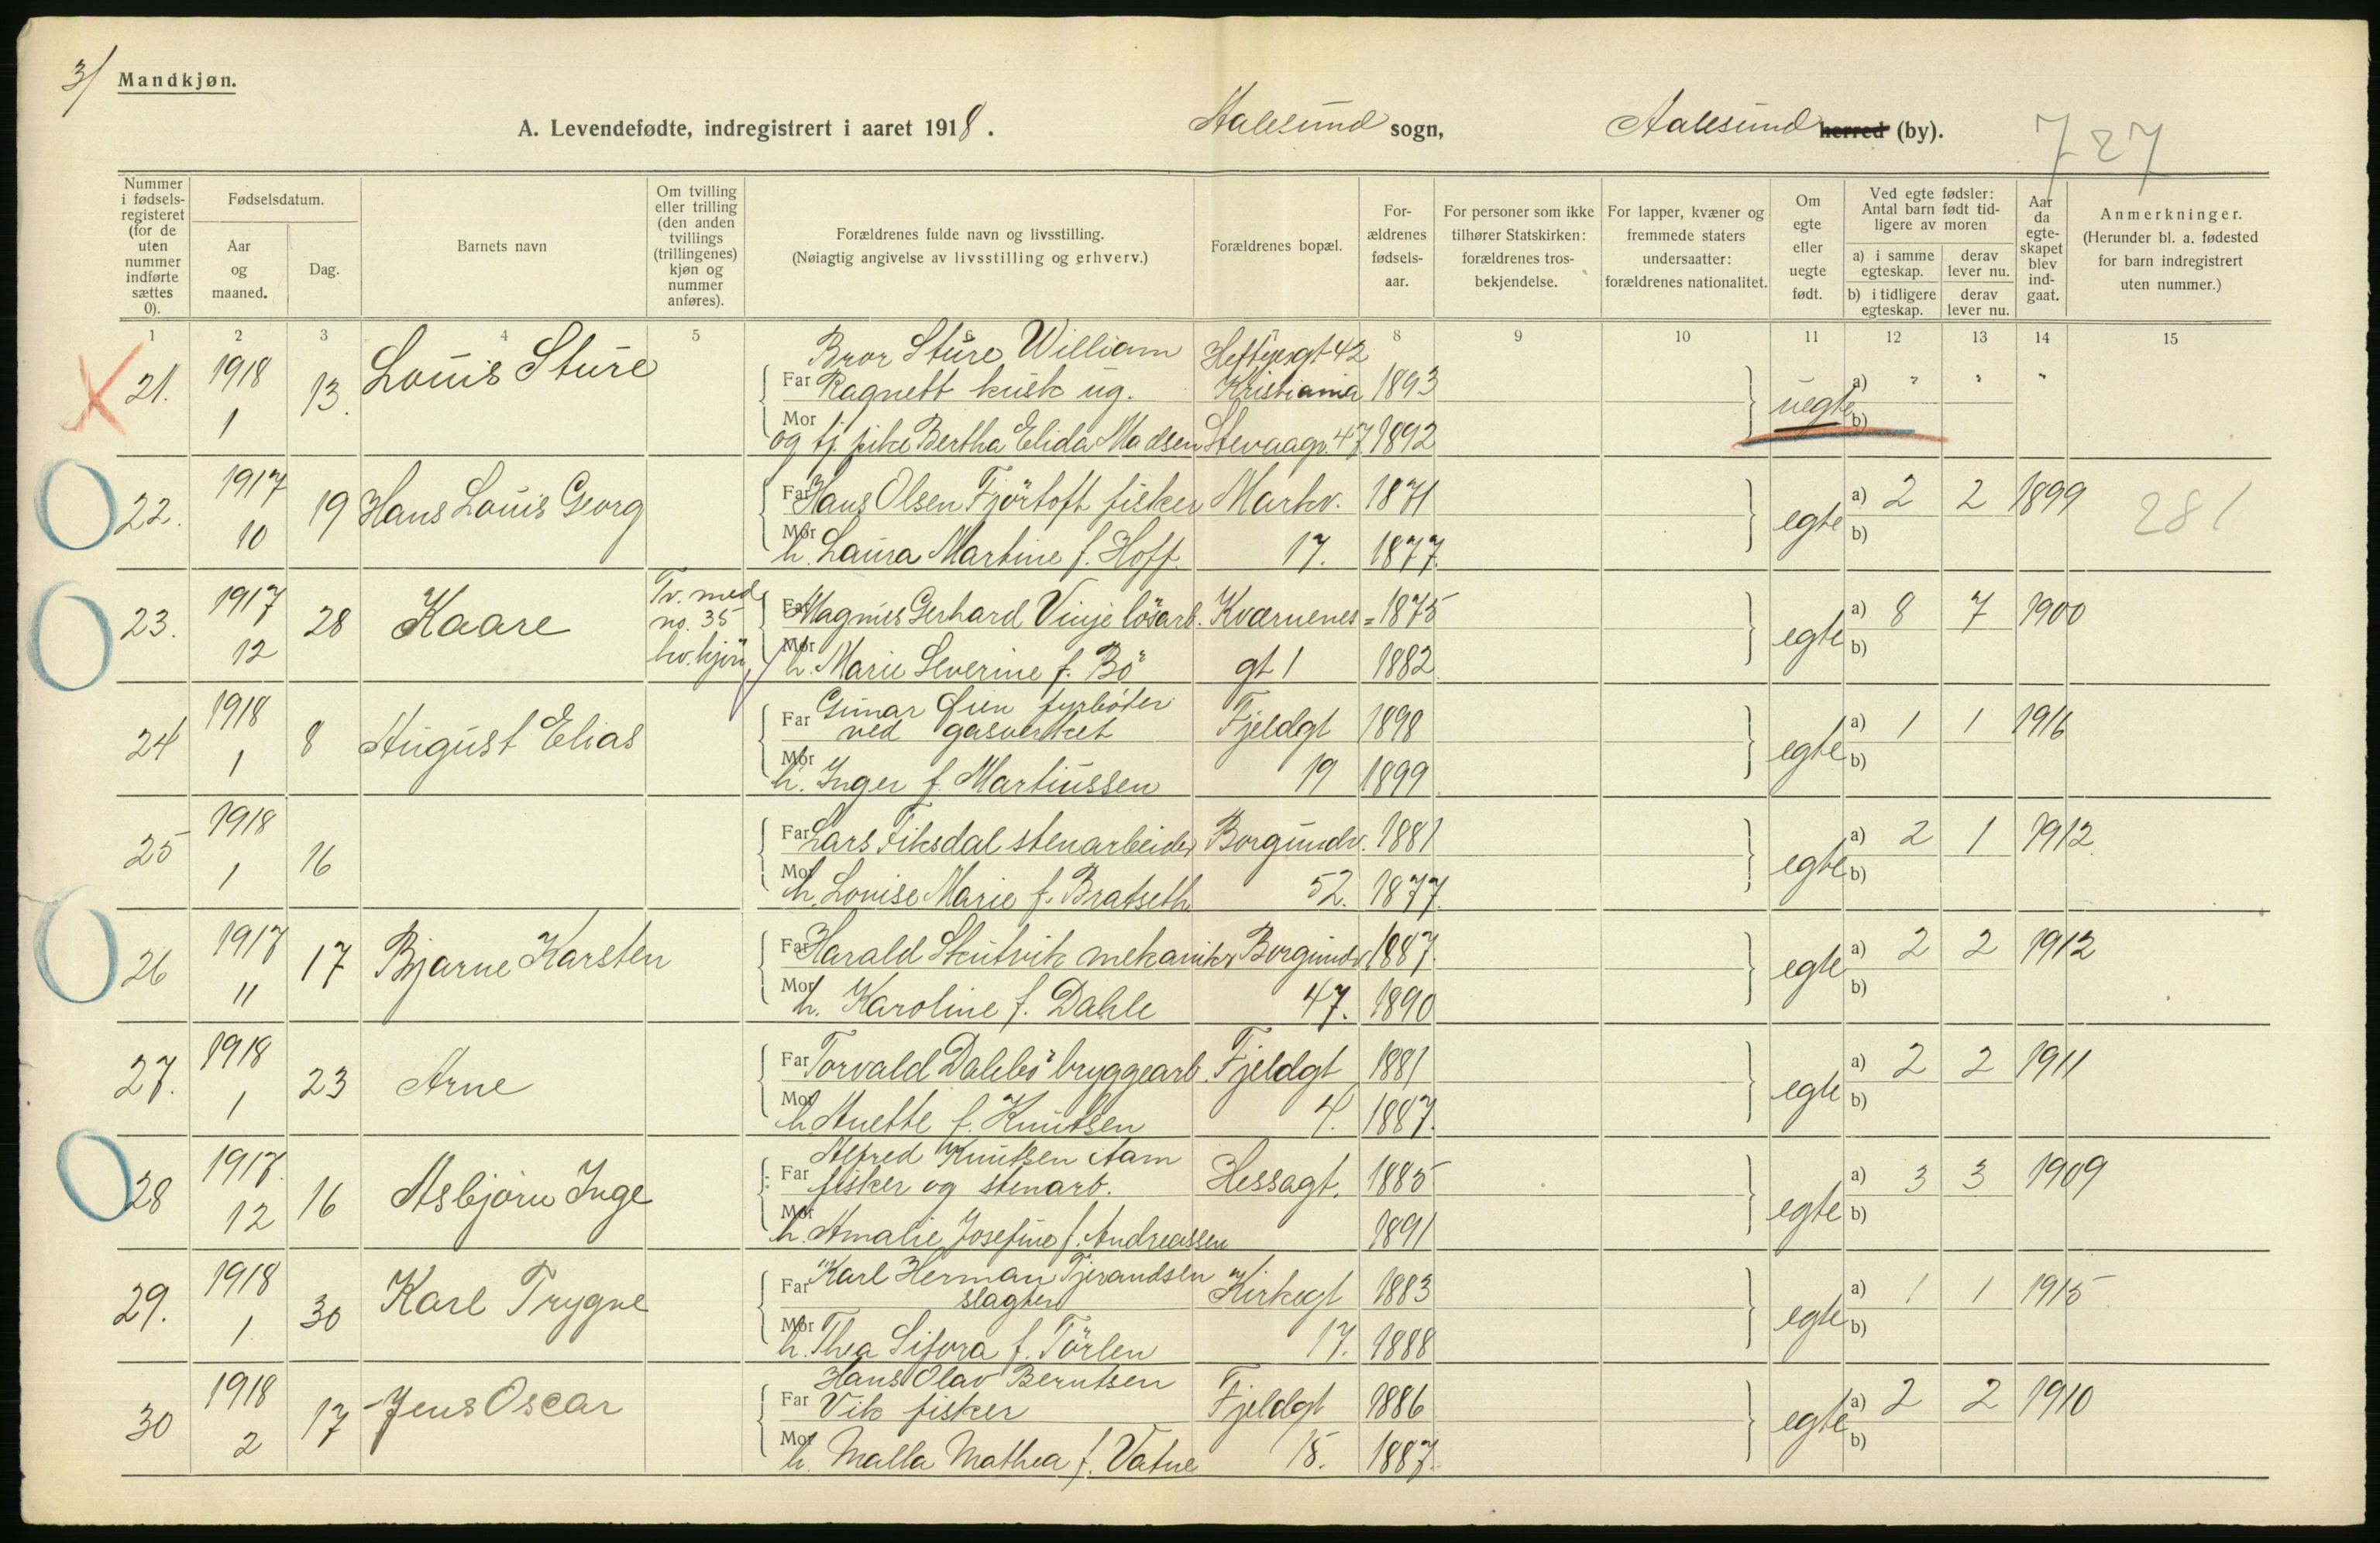 3/ Mandkjøn.
A. Levendefødte, indregistrert i aaret 1918. Aalesund sogn, Aalesund herred (by). 727
Nummer i fødselsregisteret (for de uten nummer indførte sættes 0).
Fødselsdatum.
Aar og maaned.
Dag.
Barnets navn
Om tvilling eller trilling (den anden tvillings (trillingenes) kjøn og nummer anføres).
Forældrenes fulde navn og livsstilling.
(Nøiagtig angivelse av livsstilling og erhverv.)
Forældrenes bopæl.
Forældrenes fødselsaar.
For personer som ikke tilhører Statskirken: forældrenes trosbekjendelse.
For lapper, kvæner og fremmede staters undersaatter: forældrenes nationalitet.
Om egte eller uegte født.
Ved egte fødsler: Antal barn født tidligere av moren
a) i samme egteskap. derav lever nu.
b) i tidligere egteskap. derav lever nu.
Aar da egteskapet blev indgaat.
Anmerkninger.
(Herunder bl. a. fødested for barn indregistrert uten nummer.)
1 2 3 4 5 6 7 8 9 10 11 12 13 14 15
Bror Sture William Heftyesgt 42
21. 1918 1 13. Louis Sture Far Ragnett kusk ug. Kristiania 1893 uegte a) " " "
Mor og tj. pike Bertha Elida Madsen 47 1892 b)
22. 1917 10 19 Hans Louis Georg Far Hans Olsen Fjörtoft fisker Markv. 1871 egte a) 2 2 1899 281
Mor h. Laura Martine f. Hoff. 17. 1877. b)
23. 1917 12 28 Kaare Tv. med no. 35 kv. kjön Far Magnus Gerhard Vinje lösarb. Kværnenes= 1875 egte a) 8 7 1900
Mor h. Marie Severine f. Bö gt 1 1882 b)
24 1918 1 8 August Elias Far Gunar Öien fyrböter ved gasverket Fjeldgt 1898 egte a) 1 1 1916
Mor h. Inger f. Martinssen 19 1899 b)
25 1918 1 16 Far Lars Fiksdal stenarbeider Borgundv. 1881 egte a) 2 1 1912.
Mor h. Lovise Marie f. Bratseth 52. 1877. b)
26 1917 11 17 Bjarne Karsten Far Harald Skutvik mekaniker Borgundv. 1887. egte a) 2 2 1912
Mor h. Karoline f. Dahle 47. 1890 b)
27. 1918 1 23 Arne Far Torvald Dalebö bryggearb. Fjeldgt 1881 egte a) 2 2 1911
Mor h. Anette f. Knutsen 4. 1887. b)
28 1917. 12 16 Asbjörn Inge Far Alfred Knutsen Aam fisker og stenarb. Hessagt. 1885 egte a) 3 3 1909
Mor h. Amalie Josefine f. Andreassen 1891 b)
29. 1918 1. 30 Karl Trygve Far Karl Herman Tjerandsen slagter Kirkegt 1883 egte a) 1 1 1915
Mor h. Thea Sifora f. Törlen 17. 1888 b)
30 1918 2 17 Jens Oscar Far Hans Olav Berntsen Vik fisker Fjeldgt 1886 egte a) 2 2 1910
Mor h. Malla Mathea f. Vatne 15. 1887. b)